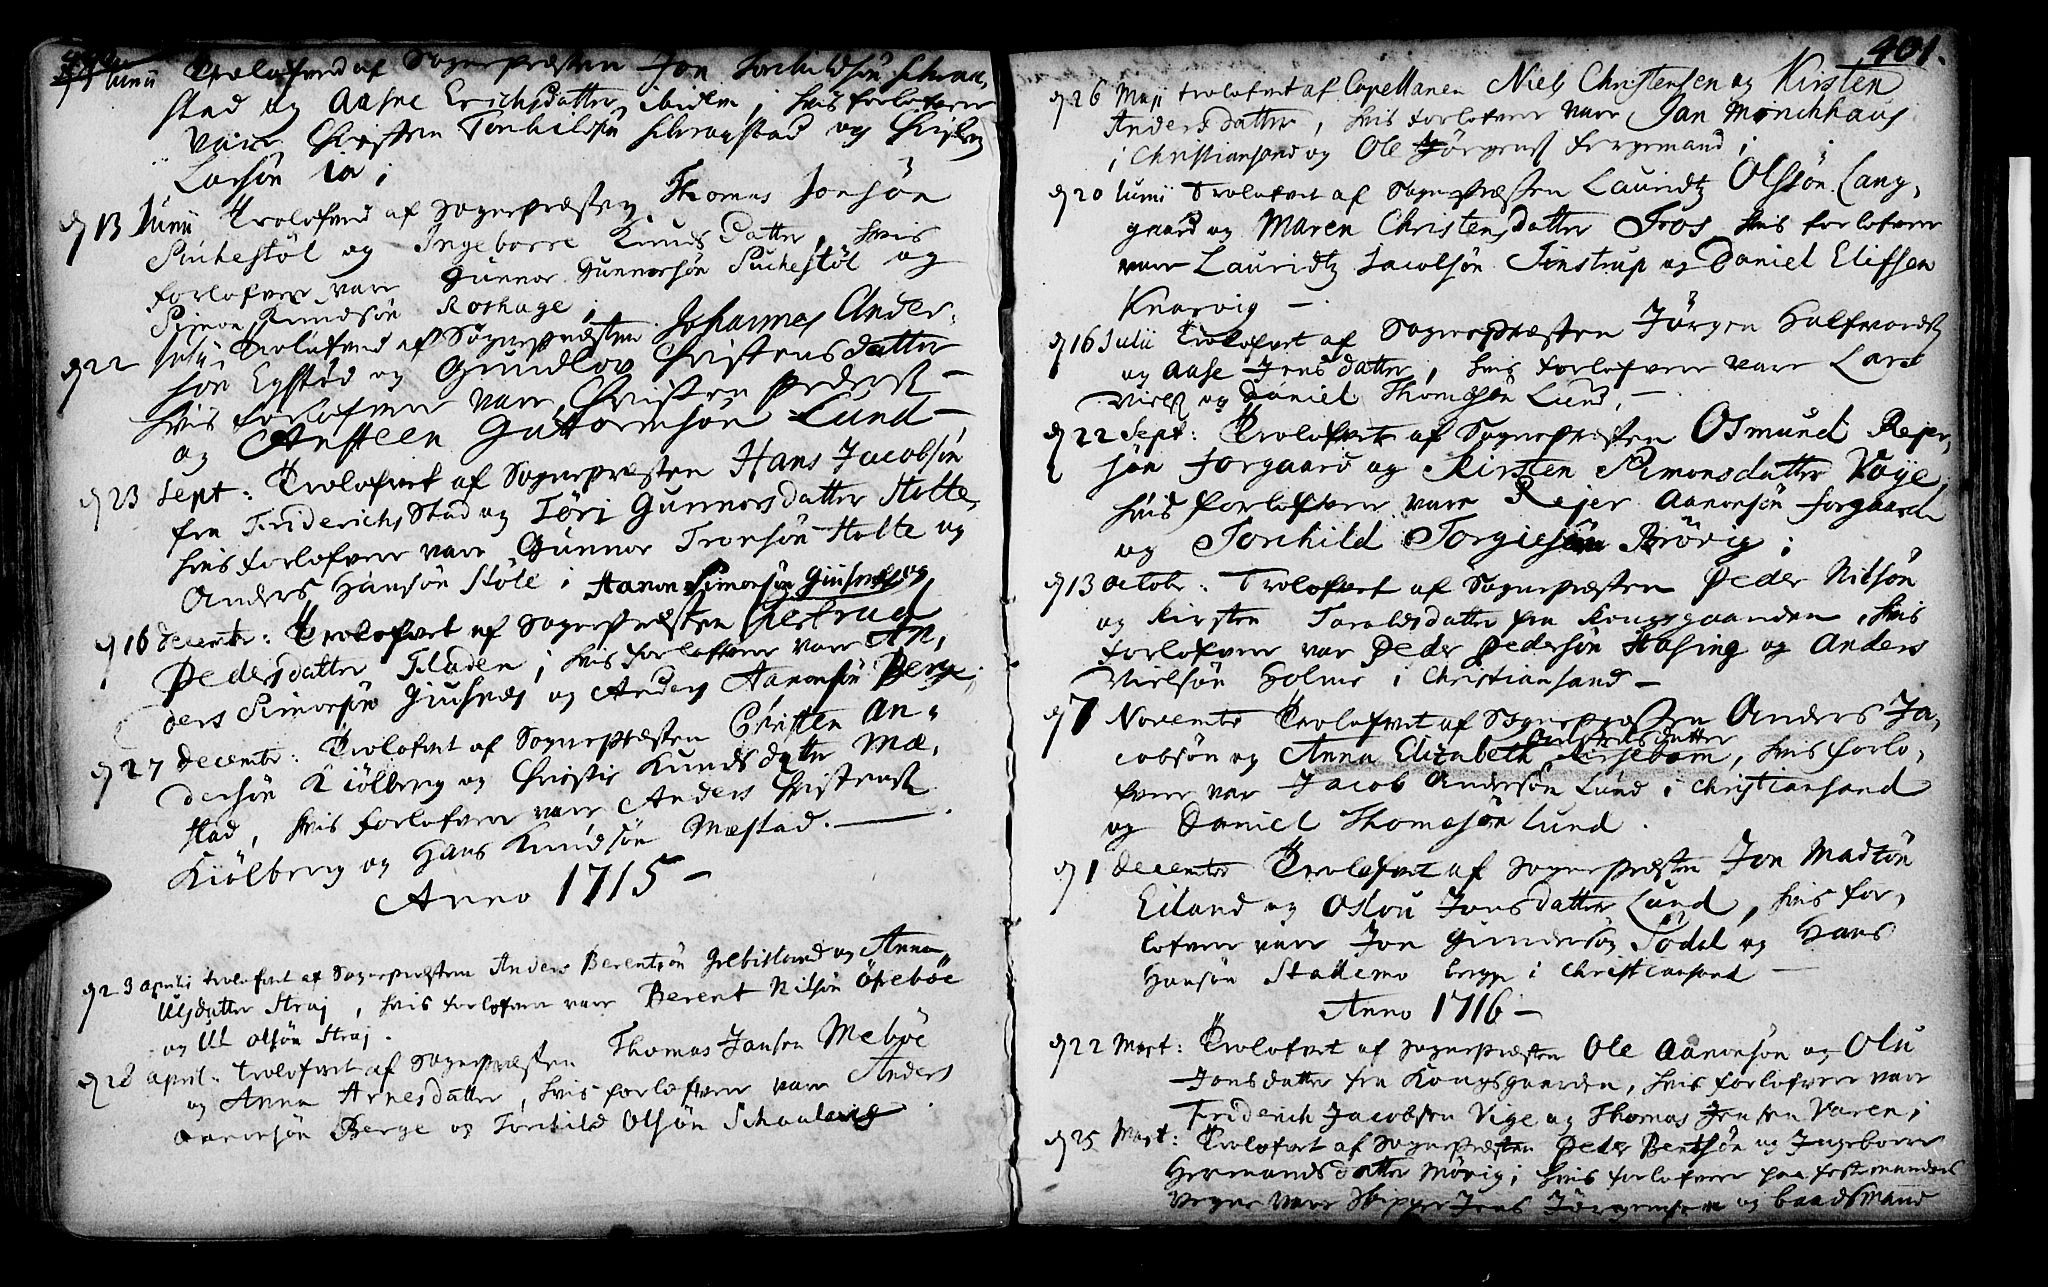 Junii Trolofved af Sognepræsten Jon Torchildsøn Schraa-
stad og Aasne Erichsdatter ibidem, hvis forlofvere
vare Christen Torchildsøn Schraastad og Christen
Larsøn
d 13 Junii Trolofved af Sognepræsten Thomas Jonsøn
Suchestøl og Ingeborre Knuds Datter, hvis
forlofvere vare Gunnor Gunnorsøn Suchestøl og
Simon Knudsøn Roshage;
d 22 Julii Trolofved af Sognepræsten Johannes Ander-
søn Egstød og Gundlov Christensdatter
hvis forlofvere vare Christen Peders:
og Ansteen Guttormsøn Lund -
d 23 Sept: Trolofvet af Sognepræsten Hans Jacobsøn
fra Friderichsstad og Tøri Gunnorsdatter Holte,
hvis forlofvere vare Gunnor Tronsøn Holte og
Anders Hansøn Støle i
Aanon Simonsøn Giusnes og
d 16 Decembr: Trolofvet af Sognepræsten Gertrud
Pedersdatter Fladen; hvis forlofvere vare An-
ders Simonsøn Giusnes og Anders Aanonsøn Berge
d 27 Decembr: Trolofvet af Sognepræsten Christen An-
dersøn Kiølberg og Christie Knuds datter Mæ-
stad, hvis forlofvere vare Anders Christens:
Kiølberg og Hans Knudsøn Mæstad. -
Anno 1715 -
d 23 aprilis trolofvet af Sognepræsten Anders Berentsøn Grebstad og Anna
Ulsdatter Straj, hvis forlofvere vare Berent Nilsøn Øvebøe
og Ul Olsøn Straj.
d 28 april: trolofvet af Sognepræsten Thomas Jansen Mebøe
og Anna Arnesdatter, hvis forlofvere vare Anders
Aanonsøn Berge og Torchild Olsøn Schaalevig
401.
d 26 Maji trolofvet af Capellanen Niels Christensen og Kirsten
Andersdatter, hvis forlofvere vare Jan Mønchhaus
i Christiansand og Ole Jørgens: fergemand;
d 20 Junii Trolofvet af Sognepræsten Lauridtz Olssøn Lang-
gaard og Maren Christensdatter Fros, hvis forlofvere
vare Lauridtz Jacobsøn Finstrup og Daniel Elifsen
Knarvig -
d 16 Julii Trolofvet af Sognepræsten Jørgen Halfvords:
og Aase Jonsdatter, hvis forlofvere vare Lars
Niels: og Daniel Thomesøn Lund, -
d 22 Sept: Trolofvet af Sognepræsten Osmund Rejer-
søn Forgaard og Kirsten Simonsdatter Voje
hvis forlofvere vare Rejer Aanonsøn Forgaard
og Torchild Torgiesøn Brøvig;
d 13 octobr: Trolofvet af Sognepræsten Peder Nilsøn
og Kirsten Taraldsdatter fra Kongsgaarden, hvis
forlofvere var Peder Pedersøn Hasing og Anders
Nielsøn Holme i Christiansand -
d 7 Novembr Trolofvet af Sognepræsten Anders Ja-
cobsøn og Anna Elizabeth datter Kirsebom, hvis forlo-
fvere var Jacob Andersøn Lund i Christiansand
og Daniel Thomesøn Lund.
d 1 Decembr Trolofvet af Sognepræsten Jon Madsøn
Eiland og Oslou Jonsdatter Lund, hvis for-
lofvere vare Jon Gundersøn Todal og Hans
Hansøn Stademo i Christiansand -
Anno 1716 -
d 22 Mart: Trolofvet af Sognepræsten Ole Aanonsøn og Olu
Jonsdatter fra Kongsgaarden, hvis forlofvere vare
Friderich Jacobsen Vige og Thomas Jensen Varen;
d 25 Mart: Trolofvet af Sognepræsten Peder Bentsøn og Ingeborre
Hermandsdatter Møvig; hvis forlofvere paa festemandens
Vegne vare Skipper Jens Jørgensen og baadsmand